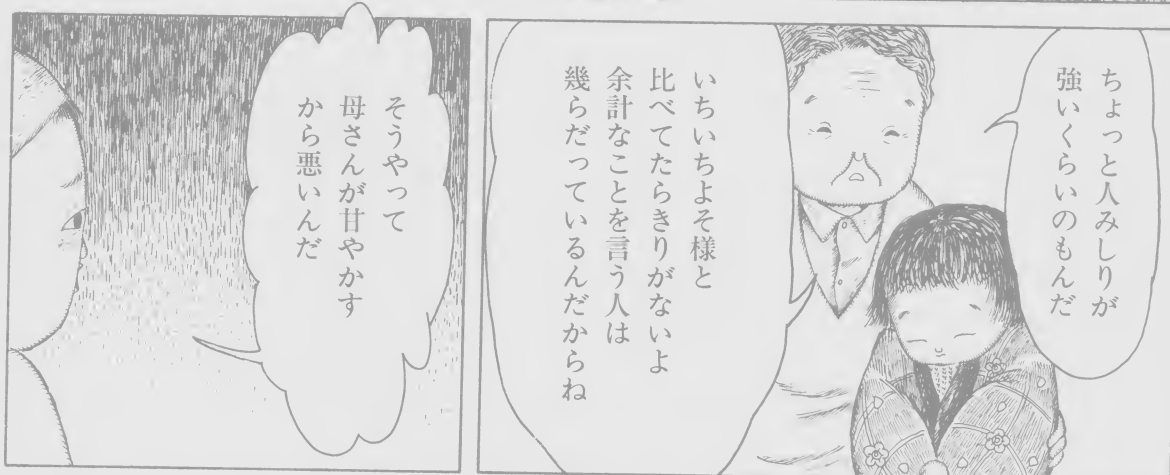 ちょっと人みしりが
強いくらいのもんだ
いちいちよそ様と
比べてたらきりがないよ
余計なことを言う人は
幾らだっているんだからね
そうやって
母さんが甘やかす
から悪いんだ